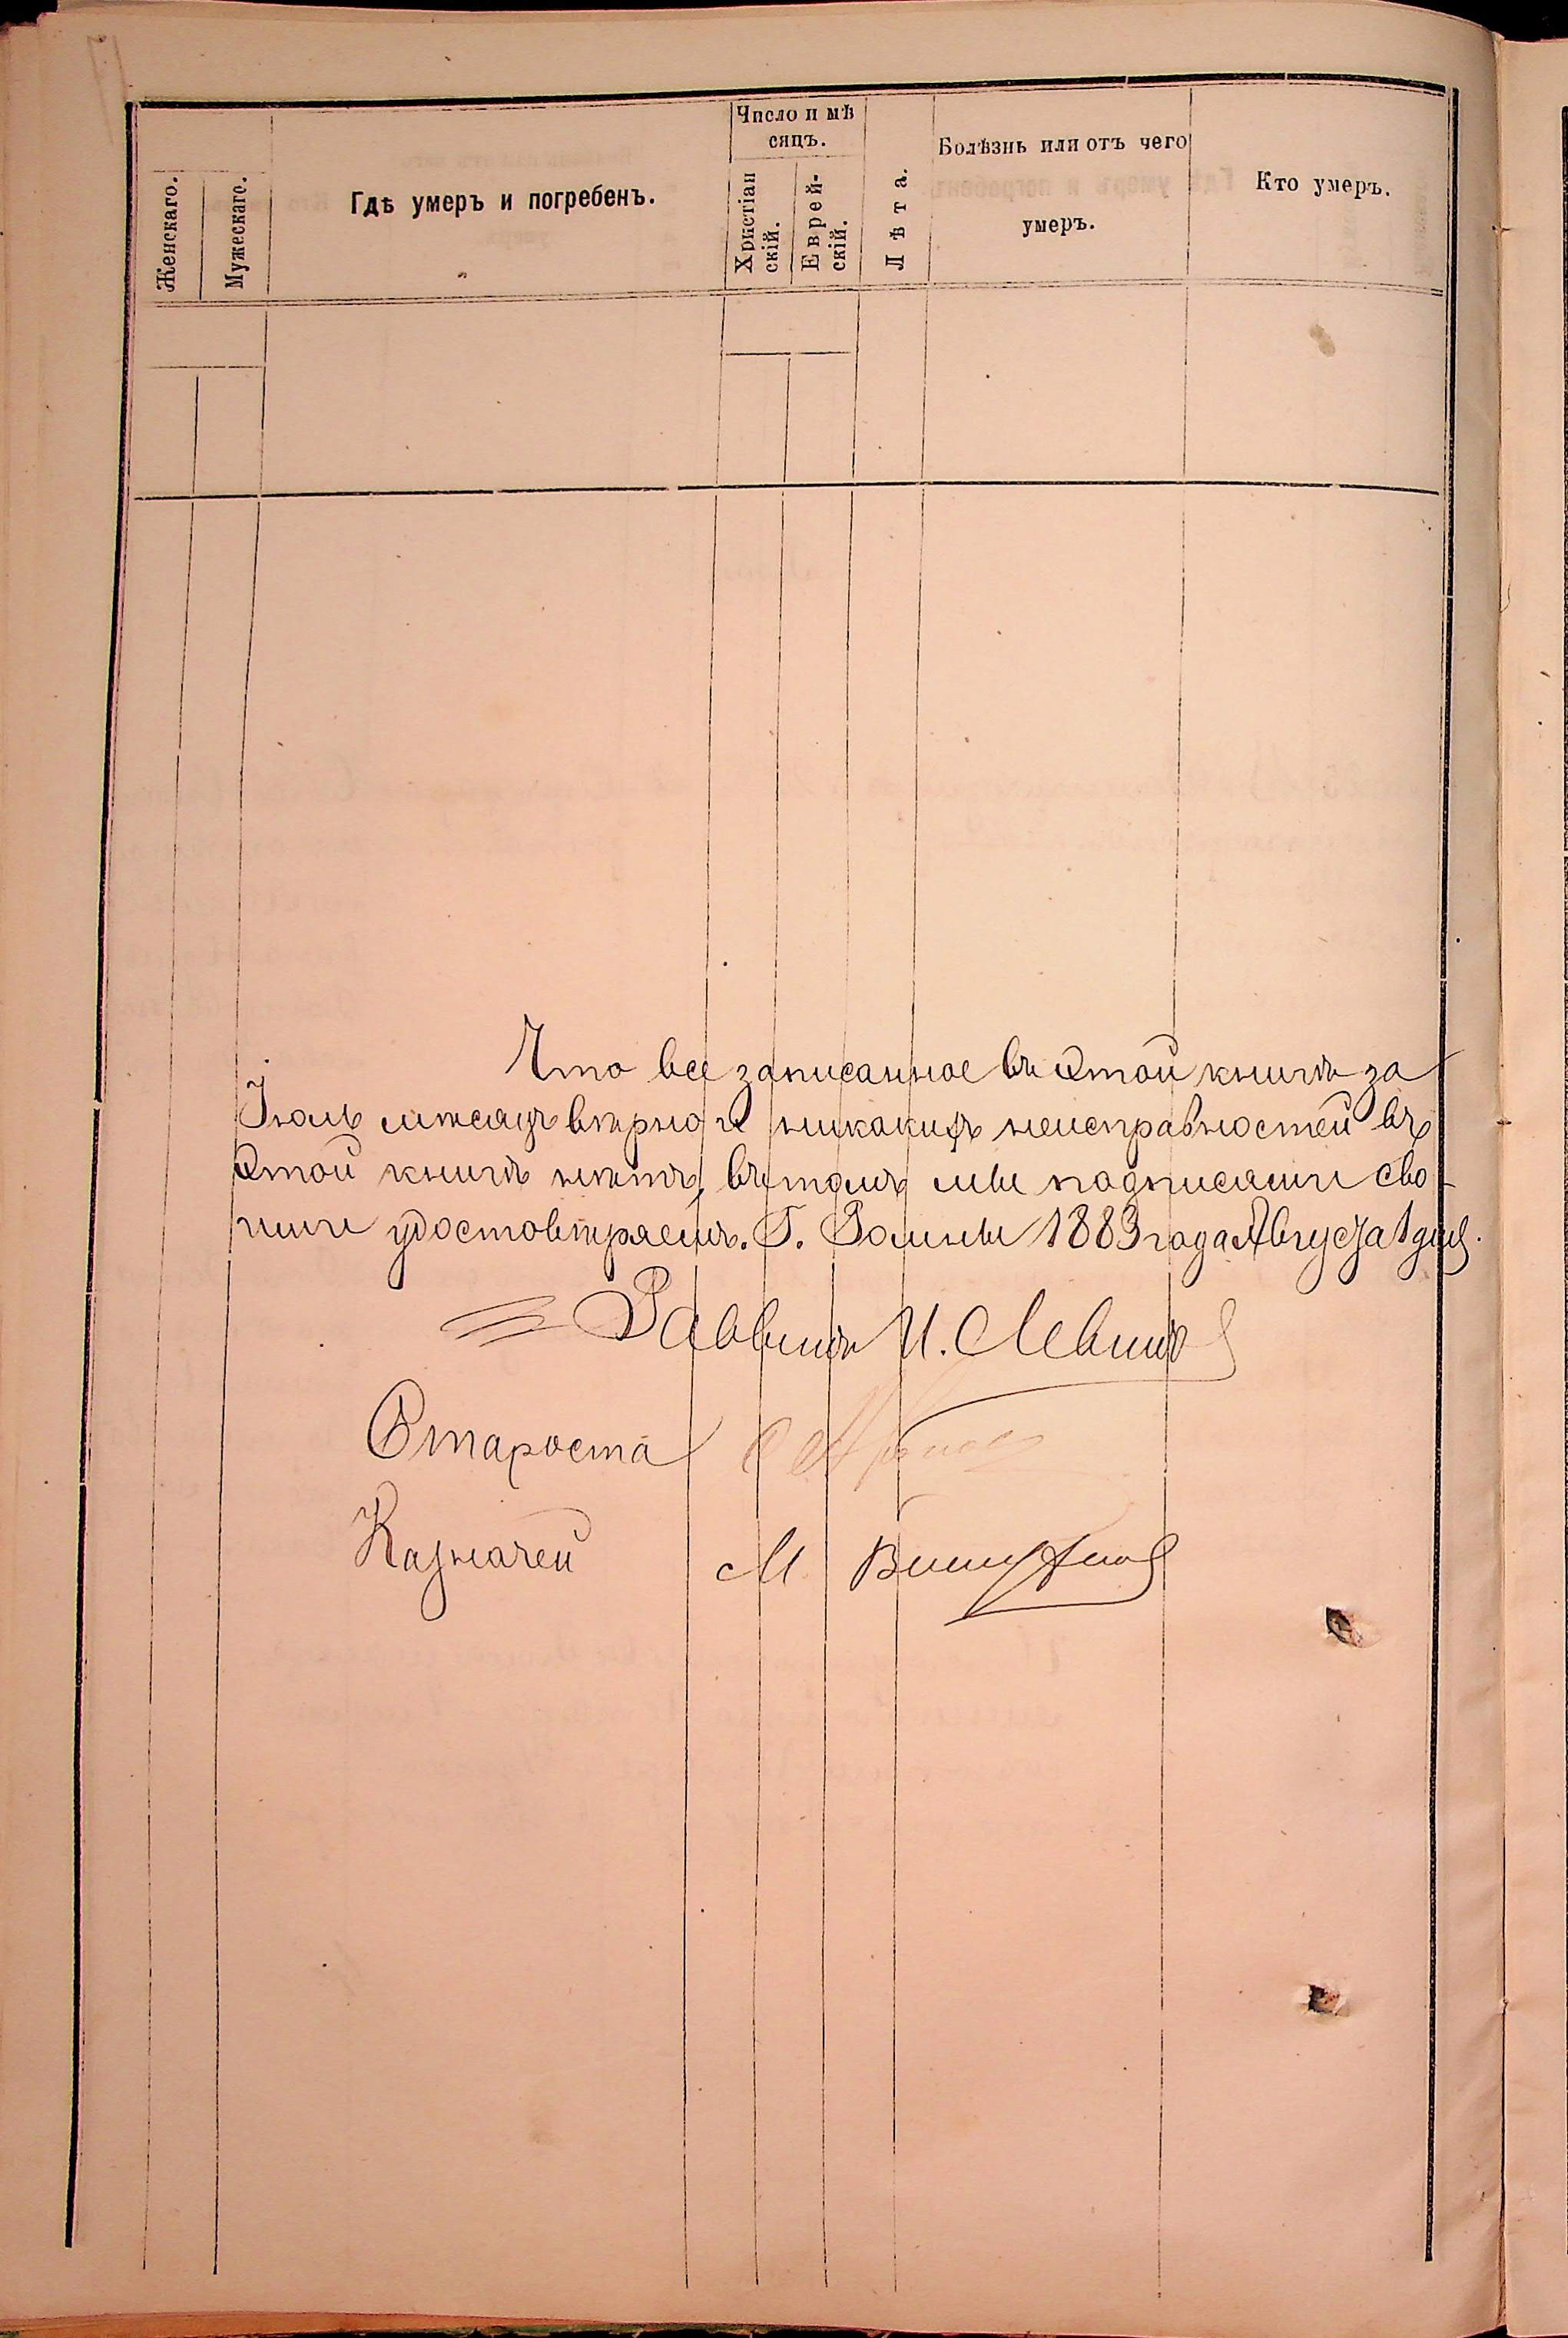 Женскаго.
Мужескаго.
Гдѣ умеръ и погребенъ.
Число и мѣ
сяцъ.
Христіан
скій.
Еврей-
скій.
Лѣта.
Болѣзнь или отъ чего
умеръ.
Кто умеръ.
Что все записанное въ этой книгѣ за
Іюль мѣсяцъ вѣрно и никакихъ неисправностей въ
этой книгѣ нѣтъ, въ томъ мы подписями сво-
ими удостовѣряемъ. Г. Ромны 1883 года Августа 1 дня.
Раввинъ И. Левин
Староста
Казначей М